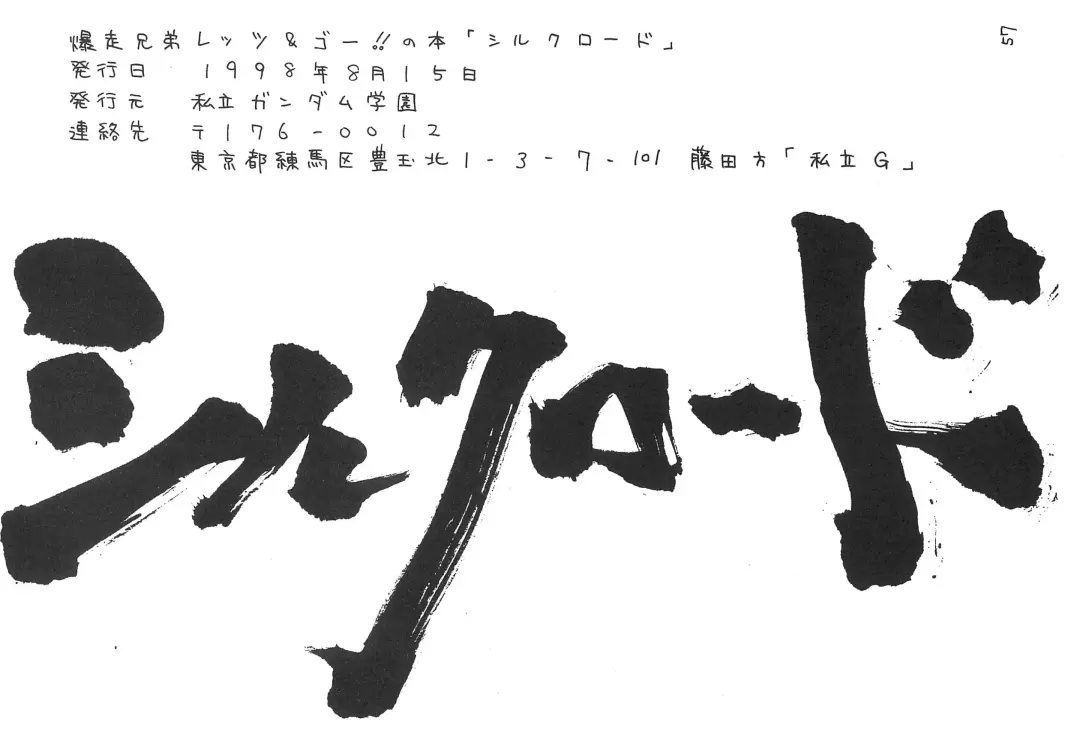 爆走兄弟レッツ&ゴー!!の本「シルクロード」
発行日 1998年8月15日
発行元 私立ガンダム学園
連絡先 〒176-0012
東京都練馬区豊玉北1-3-7-101 藤田方「私立G」
57
シルクロード